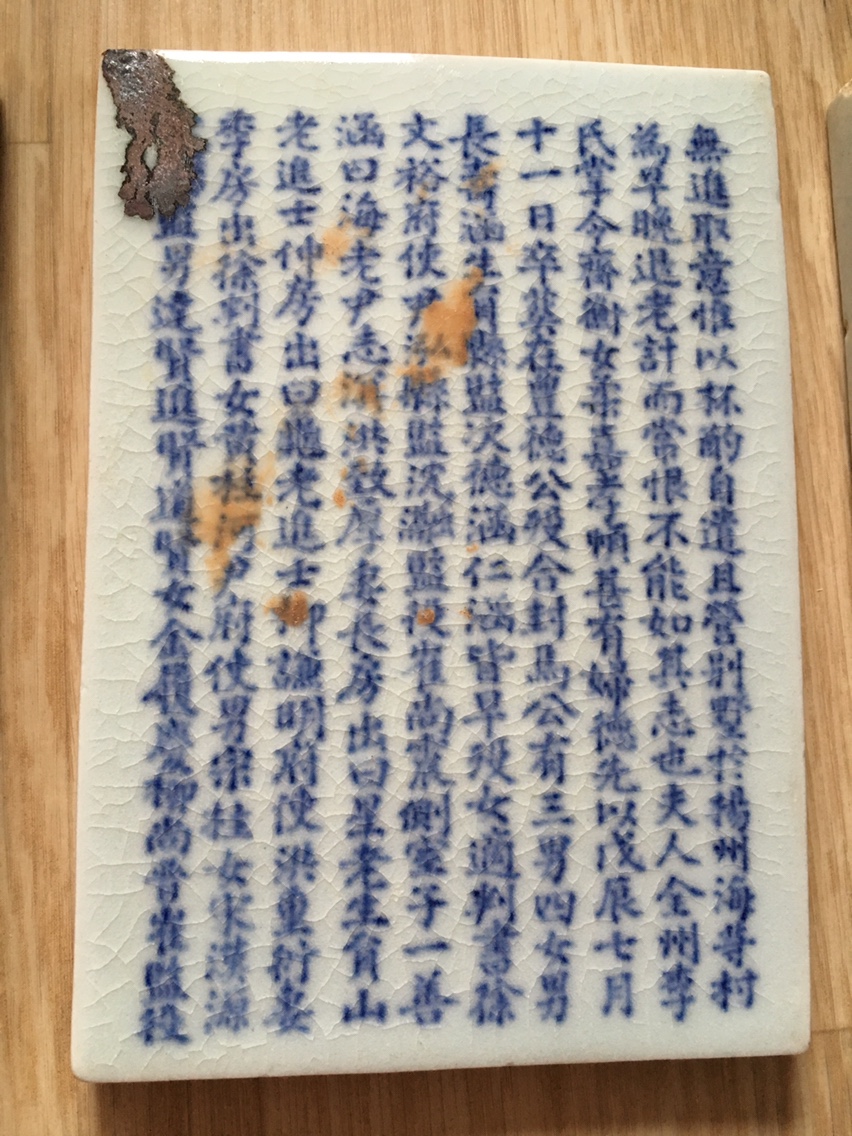 無進取意惟以杯酌自遣且營別墅於楊州海等村
爲早晩退老計而常恨不能如其志也夫人全州李
氏掌令齊衡女柔嘉孝順甚有婦德先以戊辰七月
十一日卒葬在豊德公歿合封焉公有三男四女男
長壽涵生員縣監次德涵仁涵皆早歿女適判書徐
文裕府使尹弘縣監沈瀚監役崔尚 側室子一善
涵曰海老尹志 洪啟 妻長房出曰 老生員山
老進士仲房出曰龜老進士 謙明府使洪重衍妻
季房出徐判書女 桂河 尹府使男宗柱女宋漢源
監男達賢進賢道賢女金 沈 柳尚 崔監役